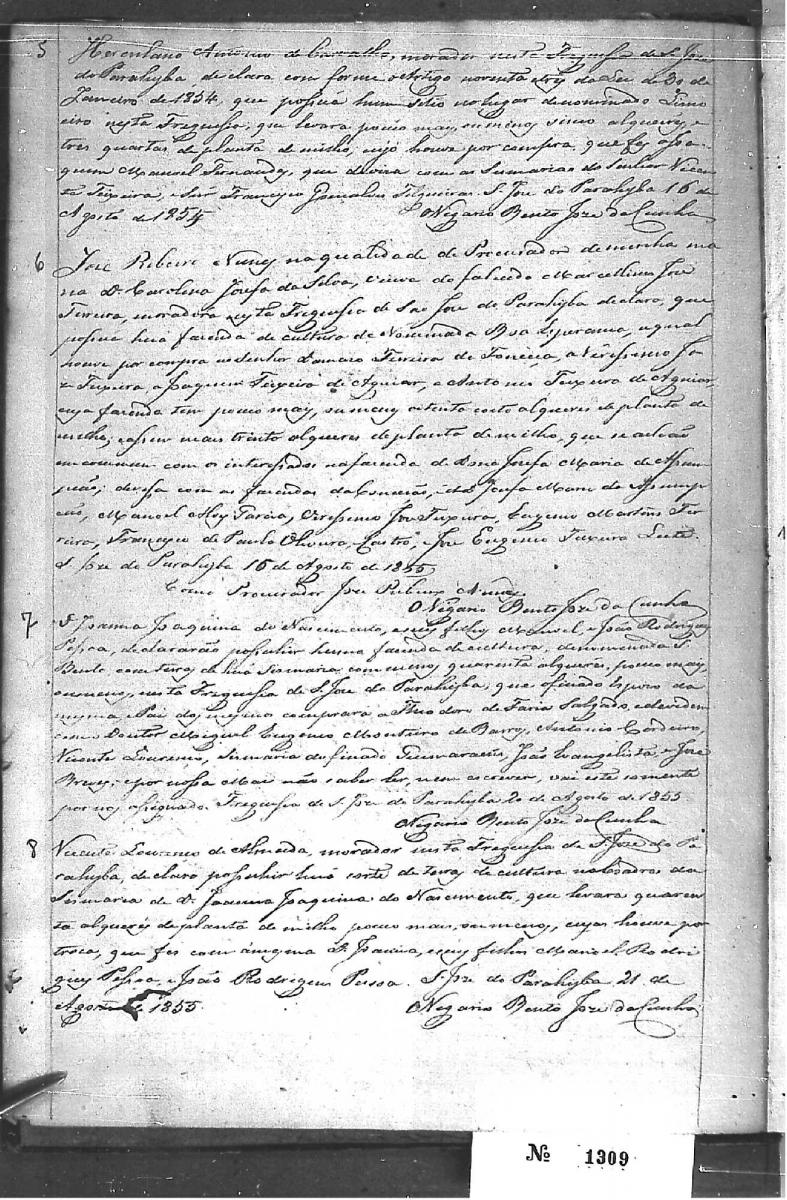 5 Herculano Antonio de Carvalho, morador nesta Freguesia de S. Jose
do Parahyba declara conforme o Artigo noventa e tres da Lei de 30 de
Janeiro de 1854, que possue hum sitio no lugar denominado Limo
eiro nesta Freguesia, que levara pouco mais, ou menos sinco alqueires e
tres quartas de planta de milho, cujo houve por compra, que fes a Joa
quim Manoel Fernandes, que devisa com as Sumarias do Senhor Vicen
te Teixeira, e Snr Francisco Gonçalves Filgueiras. S. Jose do Parahyba 16 de
Agosto de 1855 O Vigario Bento Joze da Cunha
6 Jose Ribeiro Nunes na qualidade de Procurador de minha ma
na D. Carolina Josefa da Silva, viuva do falecido Marcellino Jose
Ferreira, moradora nesta Freguesia de Sao Jose do Parahyba declaro, que
possue huã fazenda de cultura denominada Boa Esperança, a qual
houve por compra ao Senhor Damazo Ferreira de Fonceca, a Virissimo Jo
ze Teixeira a Joaquim Teixeira de Aguiar, e Antonio Teixeira de Aguiar
cuja fazenda tem pouco mais, ou menos oitenta e oito alqueres de planta de
milho; e assim mais trinta alqueres de planta de milho, que se achão
em commum com os interessados na fazenda de Dona Josefa Maria de Assum
pção; devisa com as fazendas da Conceição, D. Josefa Maria de Assump
ção, Manoel Garcia, Virissimo Joze Teixeira, Eugenio Martins Fer
reira, Francisco de Paula Oliveira Castro, e Joze Eugenio Teixeira Leite.
S. Joze do Parahyba 16 de Agosto de 1855
Como Procurador Joze Ribeiro Nunes
O Vigario Bento Joze da Cunha
7 D. Joanna Joaquina do Nascimento, e seus filhos Manoel, e João Rodrigues
Pessoa, declarão possuhir huma fazenda de cultura, denominada S.
Bento com terras de huã Sismaria com menos quarenta alqueres, pouco mais,
ou menos, nesta Freguesia de S. Joze do Parahyba, que o finado Esposo da
mesma, e Pai dos mesmos comprara a Theodoro de Faria Salgado, e devidem
com o Doutor Miguel Eugenio Monteiro de Barros, Antonio Cordeiro,
Vicente Lourenço, Sismaria do finado João Evangelista, e Joze
Breves; e por nossa Mai não saber ler, nem escrever, vai este somente
por nos assignado. Freguesia de S. Joze do Parahyba 20 de Agosto de 1855
O Vigario Bento Joze da Cunha
8 Vicente Lourenço de Almeida, morador nesta Freguesia de S. Joze do Pa
rahyba, declaro possuhir huã sorte de terras de cultura da
Sesmaria de D. Joanna Joaquina do Nascimento, que levara quaren
ta alqueres de planta de milho pouco mais, ou menos, cujas houve por
troca, que fes com a mesma D. Joanna, e seus filhos Manoel Rodri
gues Pessoa, e João Rodrigues Pessoa. S. Joze do Parahyba 21 de
Agosto de 1855. O Vigario Bento Joze da Cunha
Nº 1309